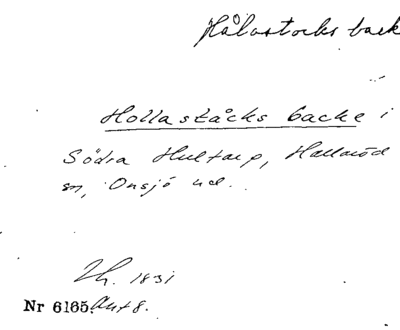 Hålastocks back
Hollastäcks backe i
Södra Hultarp, Hallaröd
sn, Onsjö hd.
Th. 1831
Nr 6165. Ant 8.